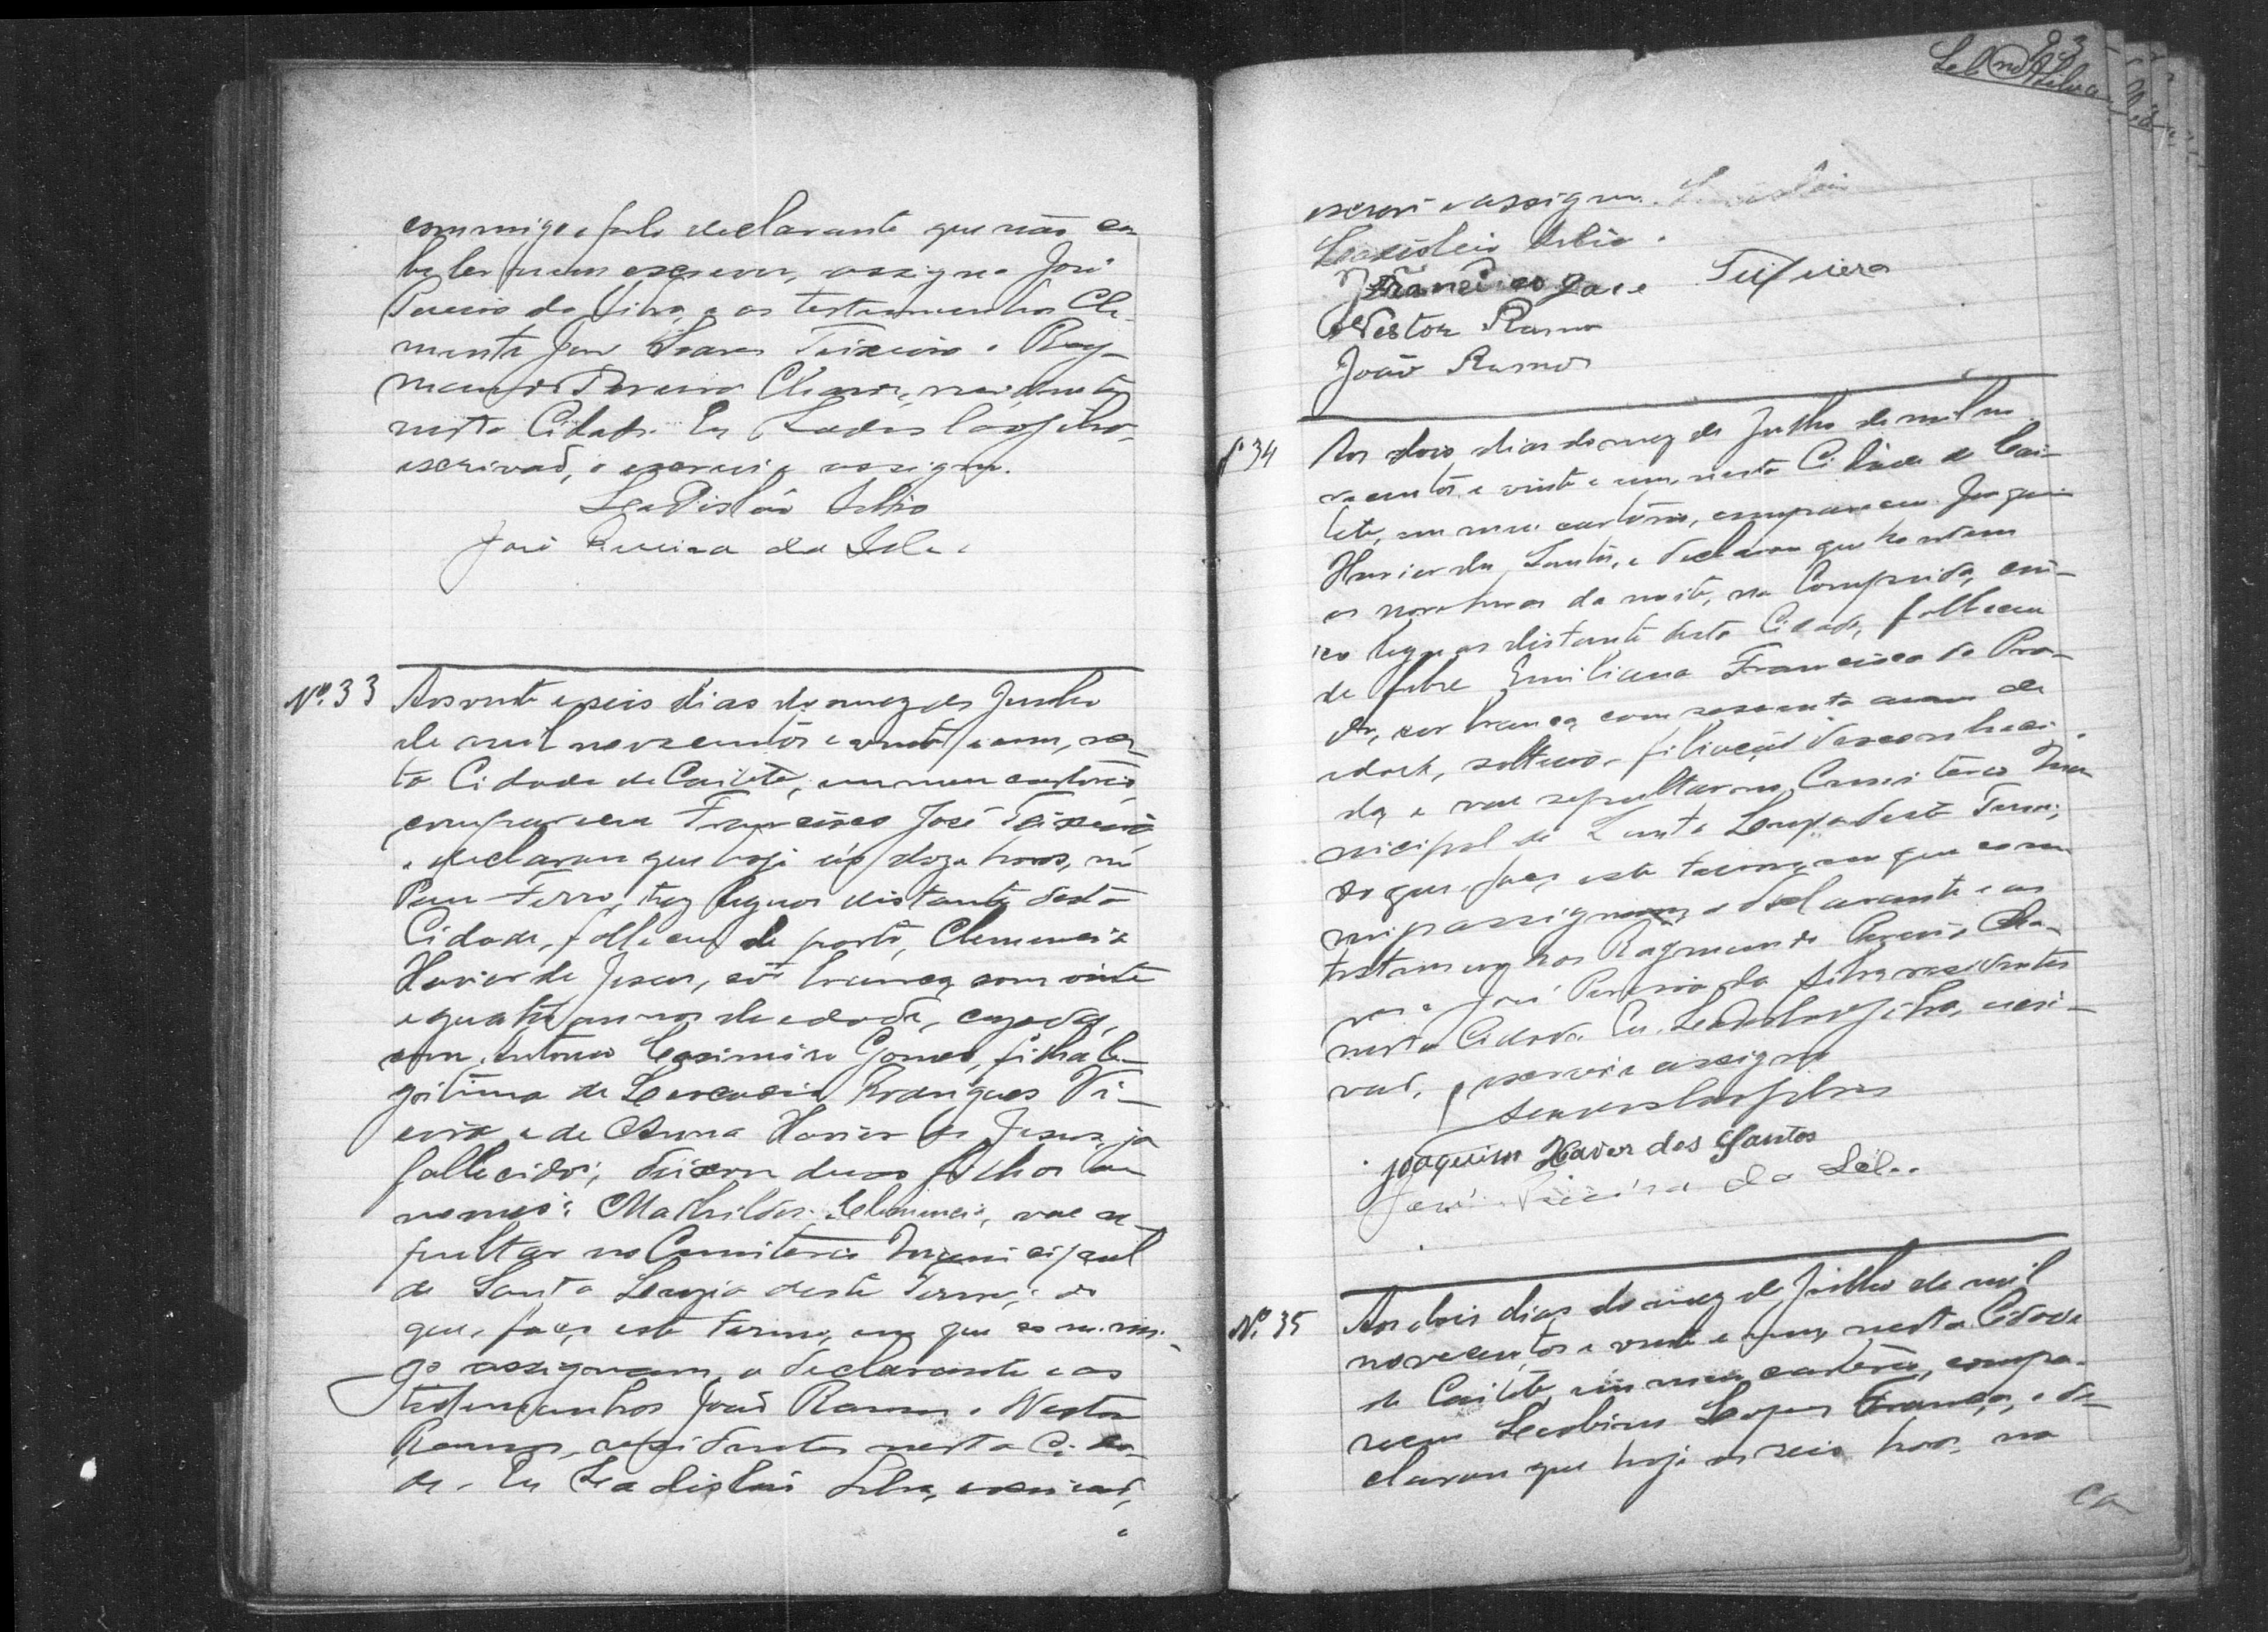 commigo e pelo declarante que não sa-
be ler nem escrever, assigna José
Pereira da Silva, e as testemunhas Cle-
mente José Soares Teixeira e Ray-
mundo Pereira Chaves, residentes
nesta Cidade. Eu Ladislão Silva,
escrivão, o escrevi e assigno.
Ladisláo Silva
José Pereira da Silva
Nº 33 Aos vinte e seis dias do mez de Junho
de mil novecentos e vinte e um, nes-
ta Cidade de Caiteté, em meu cartorio,
compareceu Francisco José Teixeira,
e declarou que hoje ás doze horas, no
Pau-Ferro, trez leguas distante desta
Cidade, falleceu de parto, Clemencia
Xavier de Jesus, côr branca, com vinte
e quatro annos de edade, cazada,
com Antonio Casimiro Gomes, filha le-
gitima de Leocadio Rodrigues Vi-
eira e de Anna Xavier de Jesus, já
fallecidos; deixou duas filhas de
nomes: Mathildes e Clemencia, vae se-
pultar no Cemiterio Municipal
de Santa Luzia deste Termo; do
que, faço este termo, em que commi-
go assignam, o declarante e as
testemunhas João Ramos e Nestor
Ramos, residentes nesta Cida-
de. Eu Ladisláo Silva, escrivão,
o
23
Silva
escrevi e assigno.
Ladisláo Silva.
Francisco José Teixeira
Nestor Ramos
João Ramos
Nº 34 Aos dois dias do mez de Julho de mil no-
vecentos e vinte e um, nesta Cidade de Cai-
teté, em meu cartorio, compareceu Joaquim
Xavier dos Santos, e declarou que hontem
as nove horas da noite, na Comprida, cin-
co leguas distante desta Cidade, falleceu
de febre Emiliana Francisca do Pra-
do, cor branca, com sessenta annos de
edade, solteira, filiação desconheci-
da e vae sepultar no Cemiterio Mu-
nicipal de Santa Luzia deste Termo;
do que, faço este termo, em que com-
migo assignam, o declarante e as
testemunhas Raymundo Pereira Cha-
ves e José Pereira da Silva residentes
nesta Cidade. Eu, Ladislao Silva, escri-
vão, o escrevi e assigno
Ladislao Silva
Joaquim Xavier dos Santos
José Pereira da Silva
Nº 35 Aos dois dias do mez de Julho de mil
novecentos e vinte e um, nesta Cidade
de Caiteté, em meu cartorio, compa-
receu Lopes França, e de-
clarou que hoje as seis horas, na
Ca